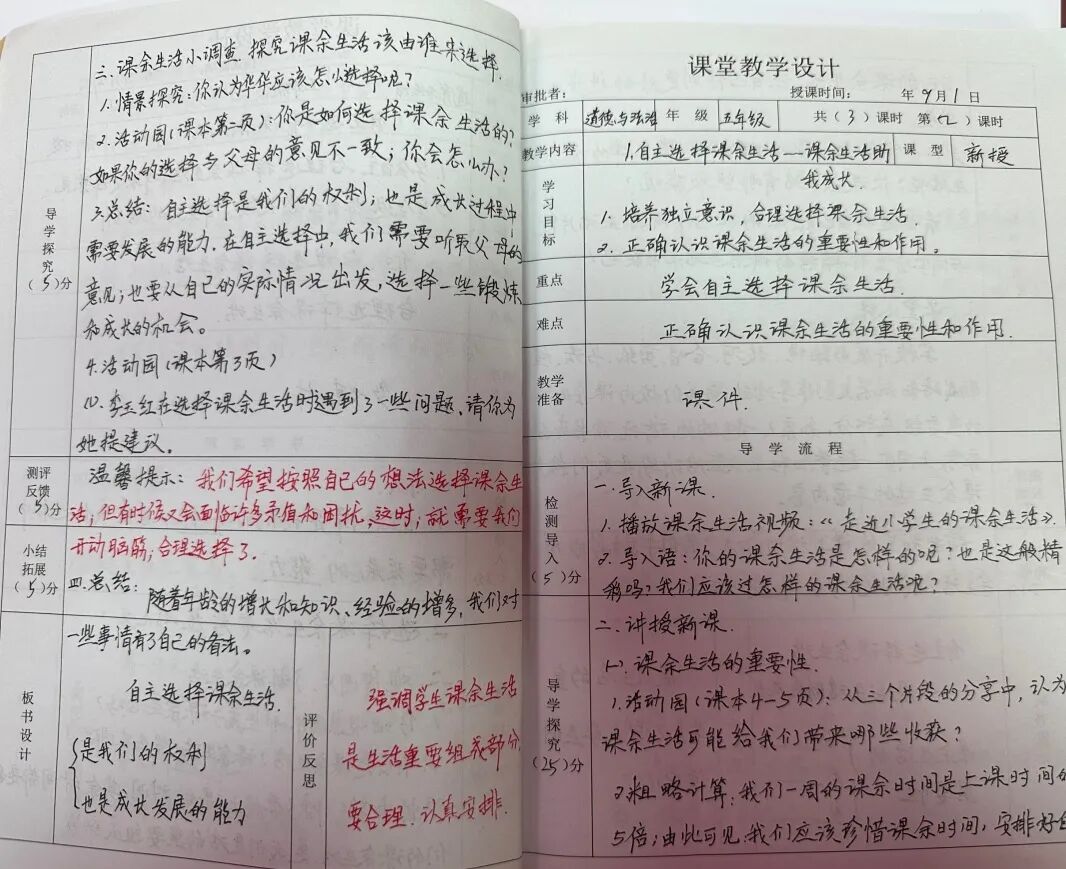 三.课余生活小调查.探究课余生活该由谁来选择.
1.情景探究:你认为华华应该怎么选择呢?
2.活动园(课本第二页):你是如何选择课余生活的?
如果你的选择与父母的意见不一致;你会怎么办?
3总结:自主选择是我们的权利;也是成长过程中
需要发展的能力.在自主选择中,我们需要听取父母的
意见;也要从自己的实际情况出发,选择一些锻炼
和成长的机会。
4.活动园(课本第3页)
(1).李玉红在选择课余生活时遇到了一些问题,请你为
她提建议。
导学探究
(5)分
测评反馈
(5)分
温馨提示:我们希望按照自己的想法选择课余生
活,但有时候又会面临许多矛盾和困扰,这时;就需要我们
开动脑筋;合理选择了.
小结拓展
(5)分
四.总结:随着年龄的增长和知识、经验的增多,我们对
一些事情有了自己的看法。
板书设计
自主选择课余生活.
是我们的权利
也是成长发展的能力
评价反思
强调学生课余生活
是生活重要组成部分,
要合理.认真安排.
课堂教学设计
审批者: 授课时间: 年9月1日
学科 道德与法治 年级 五年级 共(3)课时 第(2)课时
教学内容 1.自主选择课余生活——课余生活助 课型 新授
我成长.
学习目标
1.培养独立意识,合理选择课余生活.
2.正确认识课余生活的重要性和作用。
重点 学会自主选择课余生活.
难点 正确认识课余生活的重要性和作用.
教学准备 课件.
导学流程
检测导入
(5)分
一.导入新课.
1.播放课余生活视频:《走近小学生的课余生活》.
2.导入语:你的课余生活是怎样的呢?也是这般精
彩吗?我们应该过怎样的课余生活呢?
导学探究
(25)分
二.讲授新课.
(一).课余生活的重要性.
1.活动园(课本4-5页):从三个片段的分享中,认为
课余生活可能给我们带来哪些收获?
2.粗略计算:我们一周的课余时间是上课时间的
5倍;由此可见:我们应该珍惜课余时间,安排好